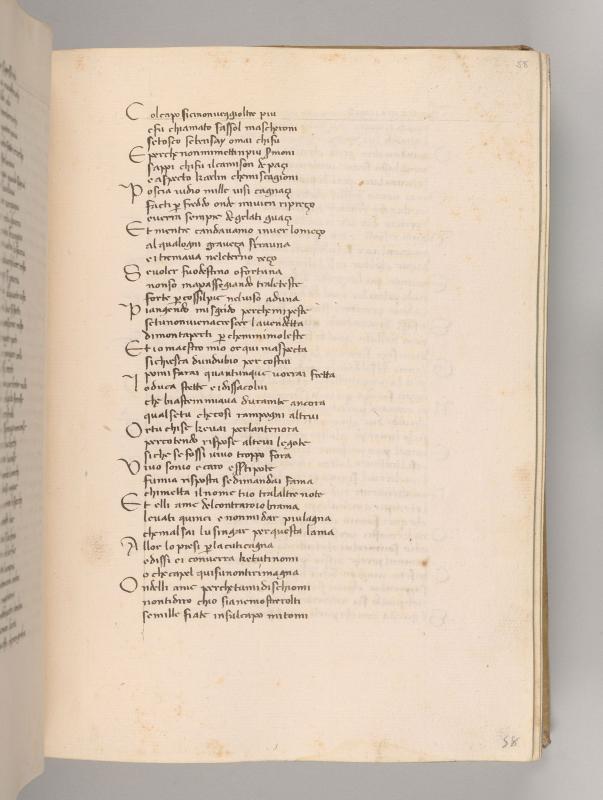 58
Col capo sicinonveggioltre piu
efu chiamato sassol mascheroni
setosco setensay omai chifu
Eperche nonmimettinpiu sermoni
sappi chifu ilcamison de paçi
e aspecto karlin chemiscagioni
Poscia vidio mille visi cagnaçi
facti per freddo onde mivien ripreço
everra sempre degelati guaçi
Et mentre candavamo inver lomeço
al qualogni graveça serauna
eitremava neleterno reço
Sevoler fuodestino ofortuna
nonso mapassegiando traleteste
forte percossilpie nelviso aduna
Piangendo misgrido perchemipeste
setunonvienacrescer lavendetta
dimontaperti perchemimoleste
Et io maestro mio orqui maspecta
sichiesca dundubio per costui
poimi farai quantunque vorrai fretta
Loduca stette eidissacolui
che biastemmiava duramente ancora
qualsetu checosi rampogni altrui
Ortu chise kevai perlantenora
percotendo rispose altrui legote
siche se fossi vivo troppo fora
Vivo sonio ecaro essetipote
fumia risposta sedimandai fama
chimetta ilnome tuo tralaltre note
Et elli ame delcontraroiobrama
levati quinci e nonmi dar piulagna
chemalsai lusingar perquesta lama
Allor lopresi perlacuticagna
edissi ei converra ketutinomi
o checapel quisunontirimagna
Ondelli ame perchetumidischiomi
nontidiro chio sianemosterolti
semille fiate insulcapo mitomi
58